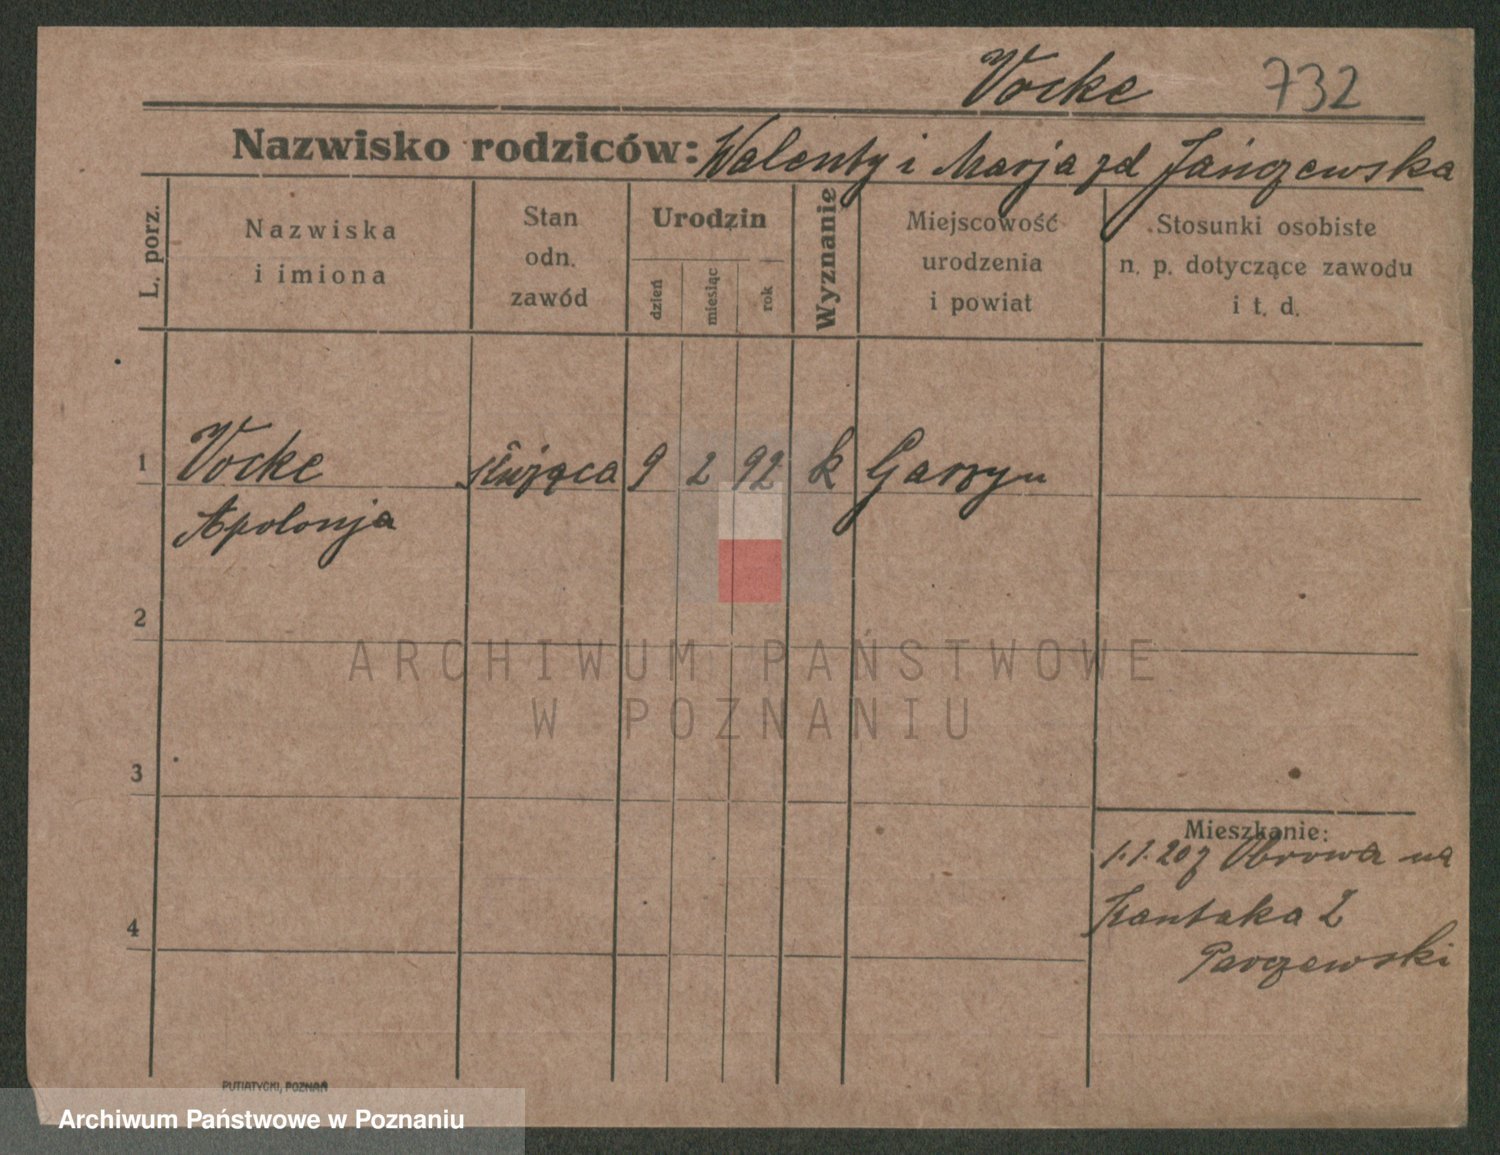 Vocke 732
Nazwisko rodziców: Walenty i Marja zd Jańczewska
L. porz.
Nazwiska
i imiona
Stan
odn.
zawód
Urodzin
dzień
miesiąc
rok
Wyznanie
Miejscowość
urodzenia
i powiat
Stosunki osobiste
n. p. dotyczące zawodu
i t. d.
1 Vocke służąca 9 2 92 k Garzyn
Apolonja
2
3
4
Mieszkanie:
1.1.20 z Obrowa na
Kantaka 2
Parczewski
PUTIATYCKI, POZNAŃ
ARCHIWUM PAŃSTWOWE
W POZNANIU
Archiwum Państwowe w Poznaniu